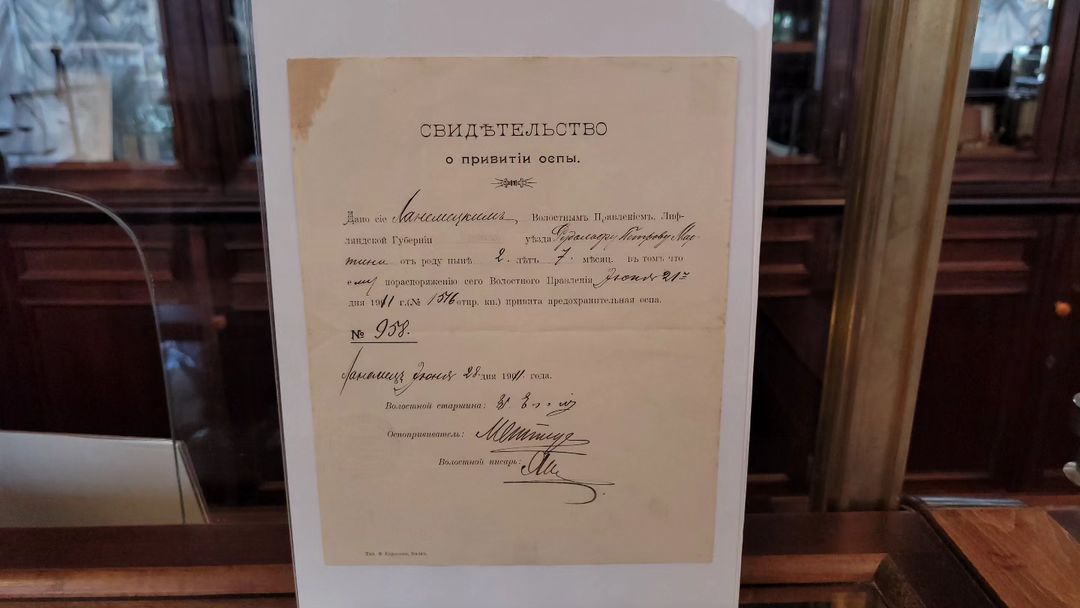 СВИДѢТЕЛЬСТВО
о привитіи оспы.
Дано сіе Ланемецкимъ Волостнымъ Правленіемъ, Лиф-
ляндской Губерніи уѣзда Петрову
отъ роду нынѣ 2 лѣтъ 7 мѣсяц. въ томъ что
ему пораспоряженію сего Волостного Правленія Іюня 21го
дня 1911 г. (№ 1516 отпр. кн.) привита предохранительная оспа.
№ 958.
Ланемецъ Іюня 28 дня 1911 года.
Волостной старшина:
Оспопрививатель:
Волостной писарь:
Тип.